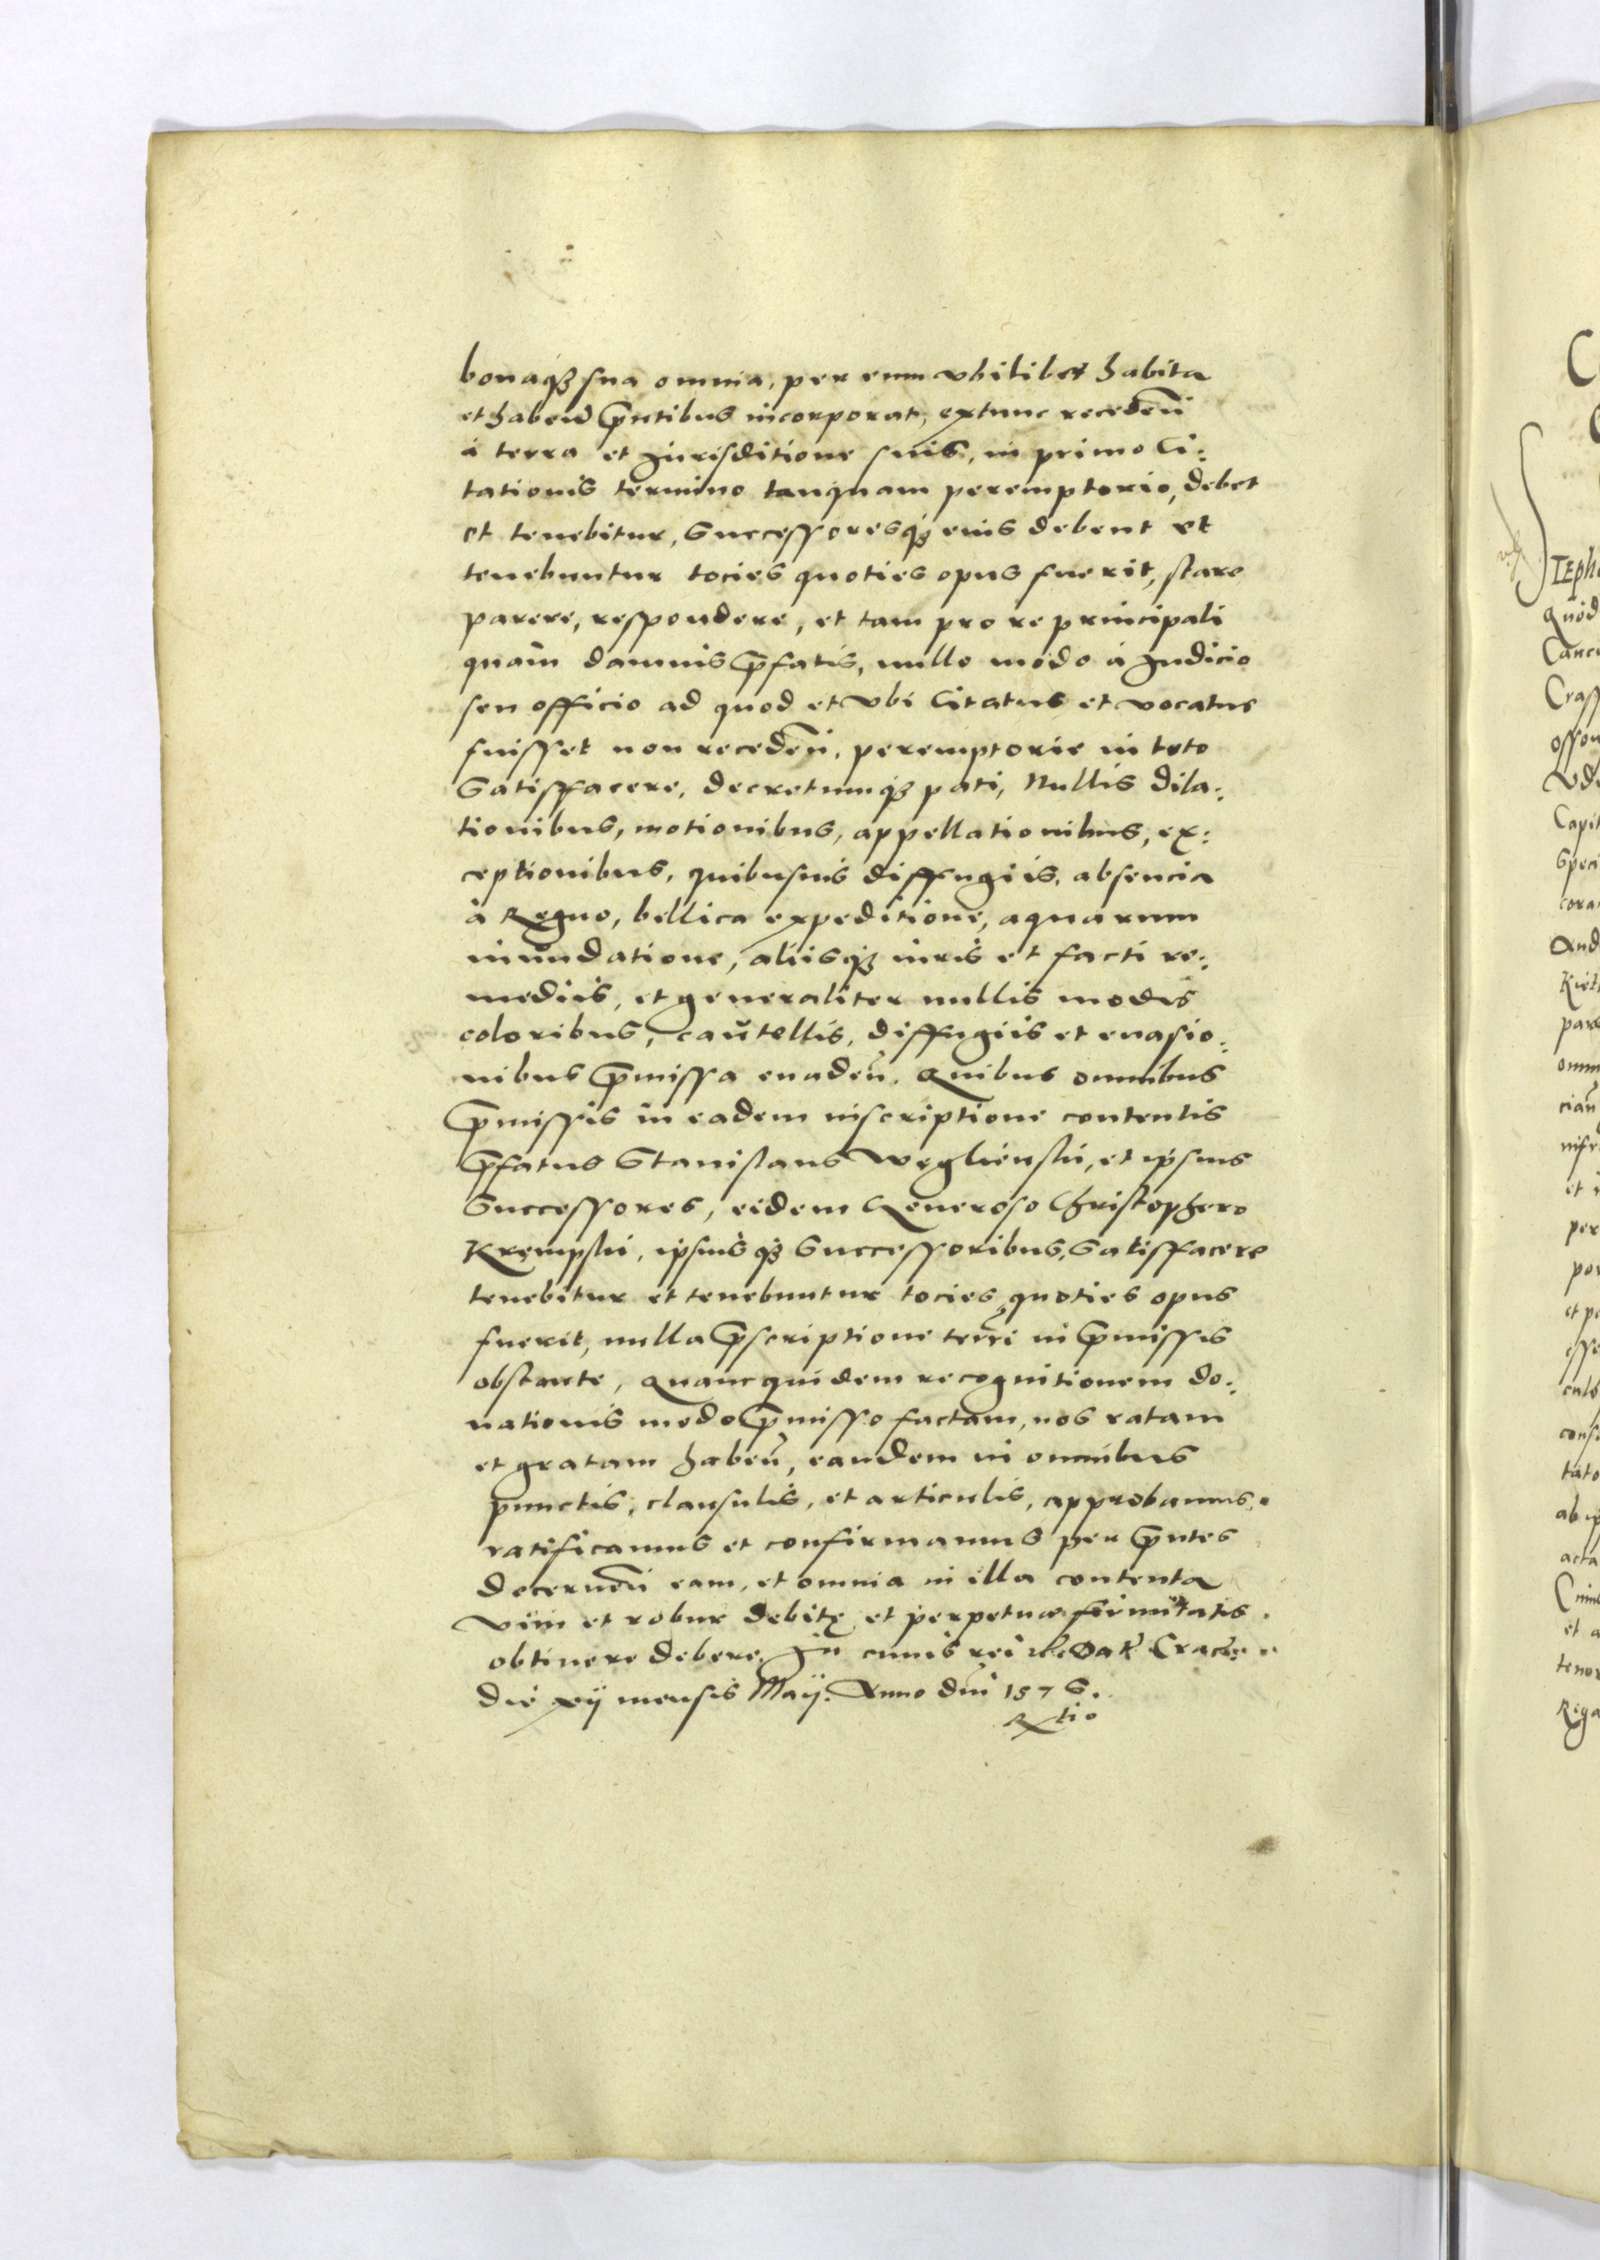 bonaq3 sua omnia, per eum vbilibet habita
et habend pntibus incorporat, extunc recedeñ
á terra et Jurisditione suis, in primo Ci:
tationis termino tanquam peremptorio, debet
et tenebitur, Successoresq3 eius debent et
tenebuntur tocies quoties opus fuerit, stare
parere, respondere, et tam pro re principali
quám damnis pfatis, nullo modo á Judicio
seu officio ad quod et vbi Citatus et vocatus
fuisset non recedeñ, peremptorie in toto
Satisfacere, decretumq3 pati, Nullis dila:
tionibus, motionibus, appellationibus, ex:
ceptionibus, quibusuis diffugiis, absencia
à Regno, bellica expeditione, aquarum
inundatione, aliisq3 iuris et facti re:
mediis, et generaliter nullis modis
coloribus, cautellis, diffugiis et euasio:
nibus pmissa euadeñ. Quibus omnibus
pmissis in eadem inscriptione contentis
pfatus Stanislaus Weglienski, et ipsius
Successores, eidem Generoso Christophero
Krempski, ipsiusq3 Successoribus, Satisfacere
tenebitur et tenebuntur tocies quoties opus
fuerit, nulla pscriptione terrĩ in pmissis
obstante, Quamquidem recognitionem do:
nationis modo pmisso factam, nos ratam
et gratam habeñ, eandem in omnibus
punctis, clausulis, et articulis, approbamus,
ratificamus et confirmamus per pntes
decerneñ eam, et omnia in illa contenta
vim et robur debitę et perpetuæ firmitatis
obtinere debere. In cuius rei Dat Crac:
die xij mensis Maij. Anno dñi 1576.
Rxtio